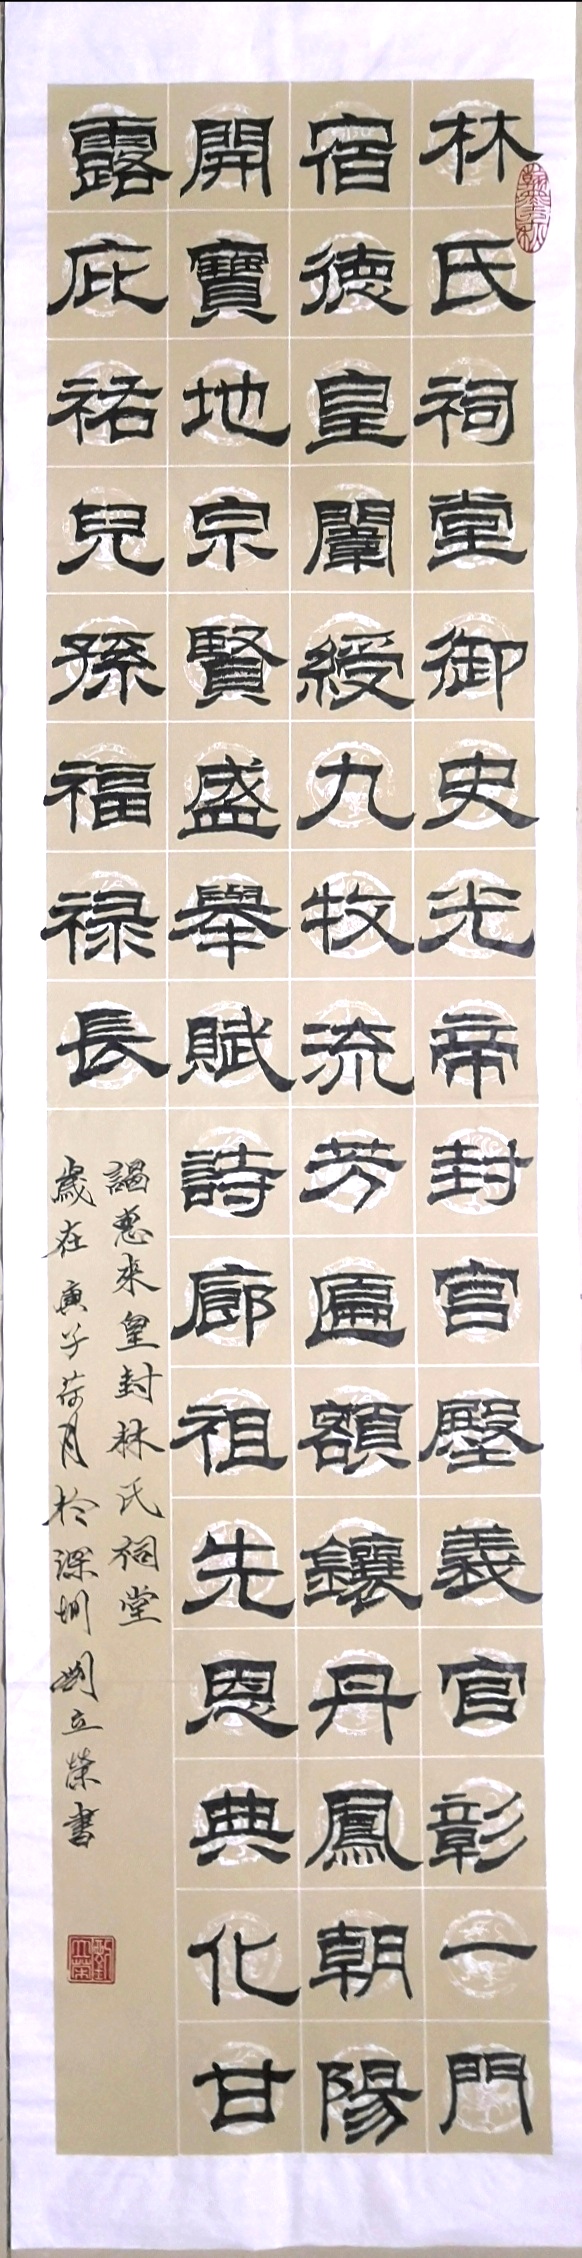 林氏祠堂御史光帝封宫壂義官彰一門
宿德皇闈綬九牧流芳匾額鑲丹鳳朝陽
開寶地宗賢盛舉賦詩廊祖先恩典化甘
露庇祐兒孫福禄長
謁惠來皇封林氏祠堂
歲在庚子荷月於深圳劉立榮書